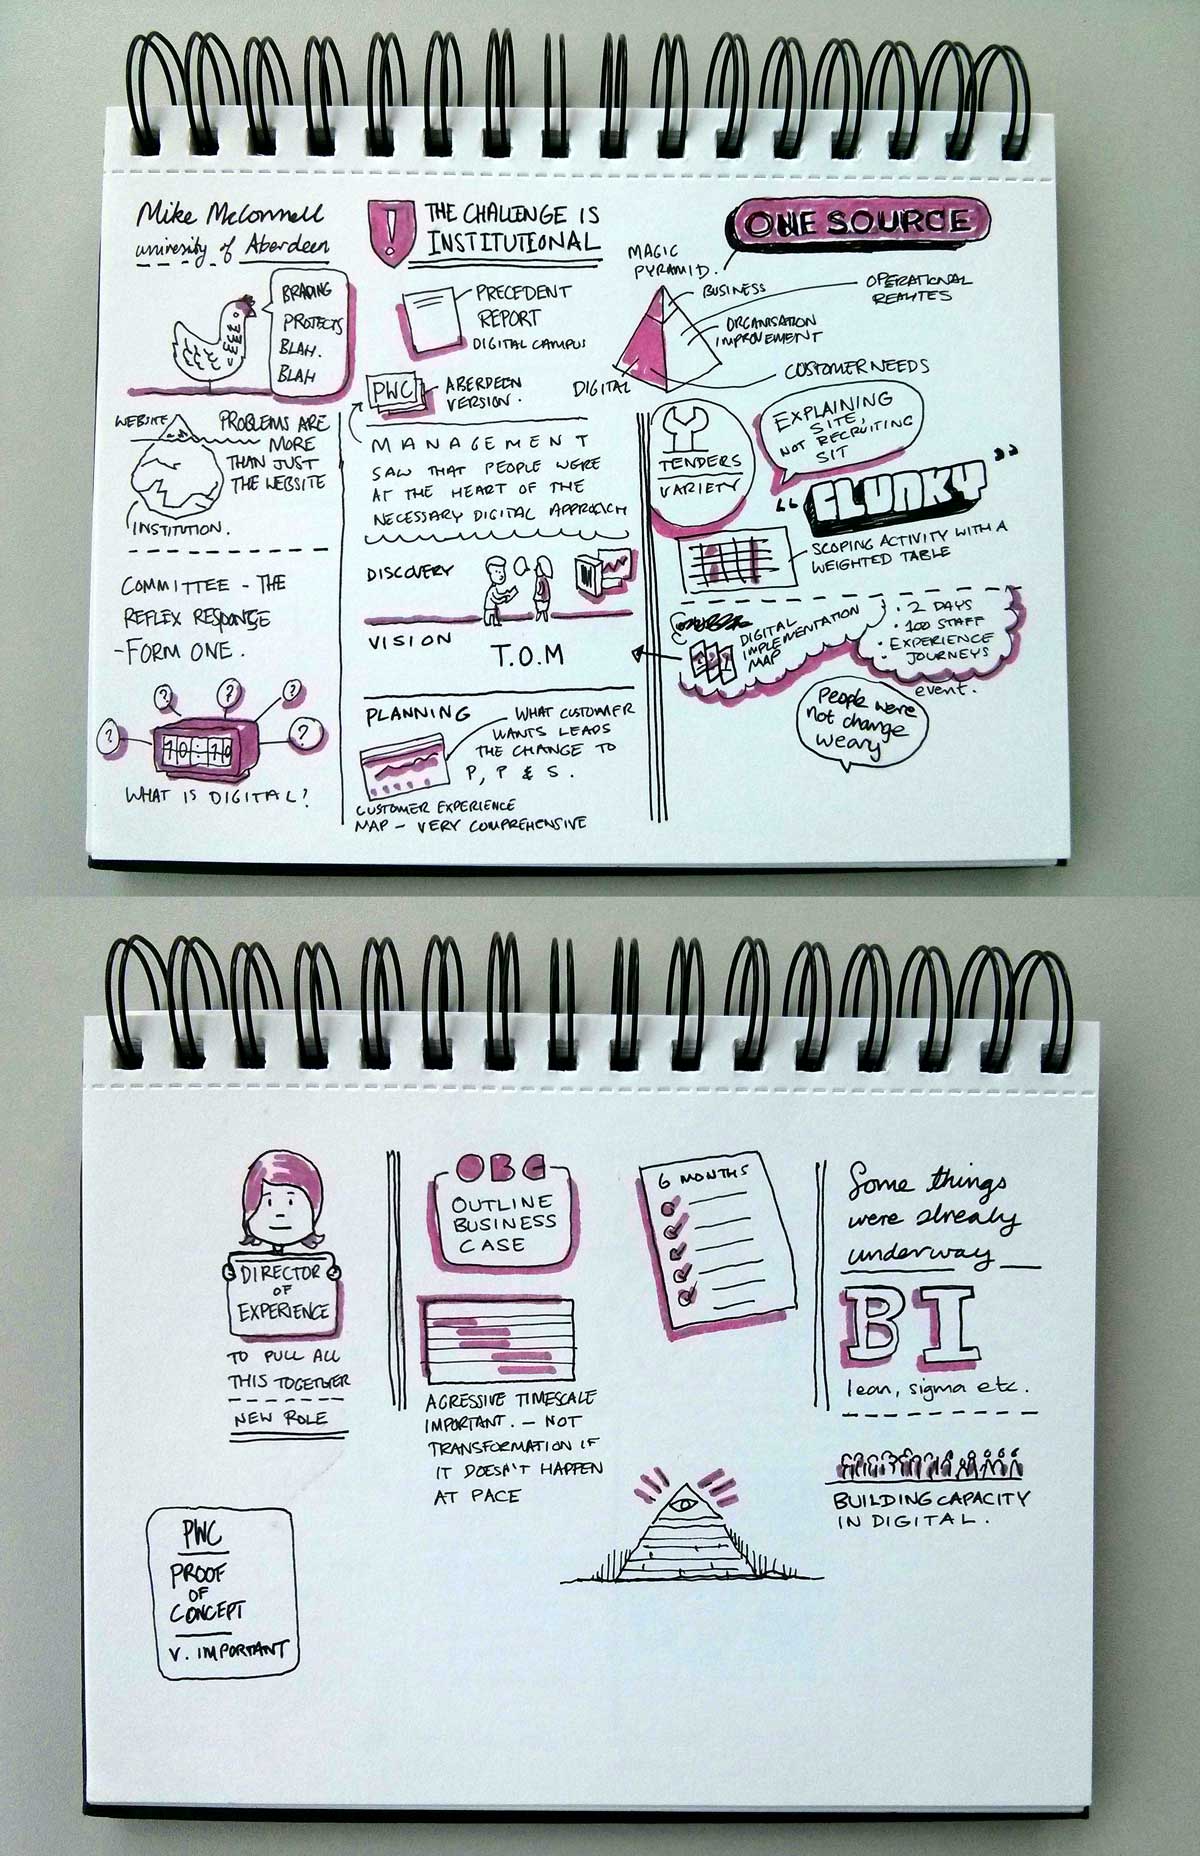 Mike McConnell
university of Aberdeen
BRADING
PROTECTS
BLAH.
BLAH
WEBSITE
PROBLEMS ARE
MORE
THAN JUST
THE WEBSITE
INSTITUTION.
COMMITTEE - THE
REFLEX RESPONSE
- FORM ONE.
?
?
?
?
?
10:10
WHAT IS DIGITAL?
!
THE CHALLENGE IS
INSTITUTIONAL
PRECEDENT
REPORT
DIGITAL CAMPUS
PWC
ABERDEEN
VERSION.
MANAGEMENT
SAW THAT PEOPLE WERE
AT THE HEART OF THE
NECESSARY DIGITAL APPROACH
DISCOVERY
VISION
T.O.M
PLANNING
WHAT CUSTOMER
WANTS LEADS
THE CHANGE TO
P, P & S.
CUSTOMER EXPERIENCE
MAP - VERY COMPREHENSIVE
ONE SOURCE
MAGIC
PYRAMID.
BUSINESS
OPERATIONAL
REALITES
ORGANISATION
IMPROVEMENT
DIGITAL
CUSTOMER NEEDS
TENDERS
VARIETY
EXPLAINING
SITE,
NOT RECRUITING
SIT
"CLUNKY"
SCOPING ACTIVITY WITH A
WEIGHTED TABLE
DIGITAL
IMPLEMENTATION
MAP
• 2 DAYS
• 100 STAFF
• EXPERIENCE
JOURNEYS
event.
People were
not change
weary
DIRECTOR
OF
EXPERIENCE
TO PULL ALL
THIS TOGETHER
NEW ROLE
PWC
PROOF
OF
CONCEPT
V. IMPORTANT
OBC
OUTLINE
BUSINESS
CASE
AGRESSIVE TIMESCALE
IMPORTANT. - NOT
TRANSFORMATION IF
IT DOESN'T HAPPEN
AT PACE
6 MONTHS
Some things
were already
underway
BI
lean, sigma etc.
BUILDING CAPACITY
IN DIGITAL.